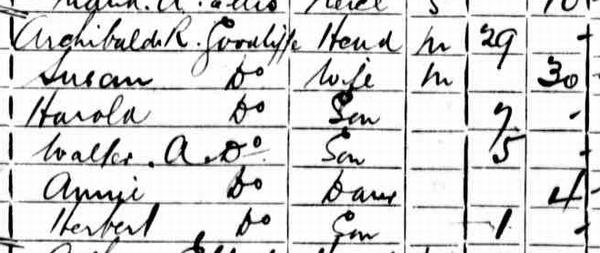 A. Niece S
Archibald R. Goodliffe Head M 29 -
Susan Do Wife M 30
Harold Do Son 7 -
Walter. A. Do Son 5 -
Annie Do Daur 4
Herbert Do Son 1 -